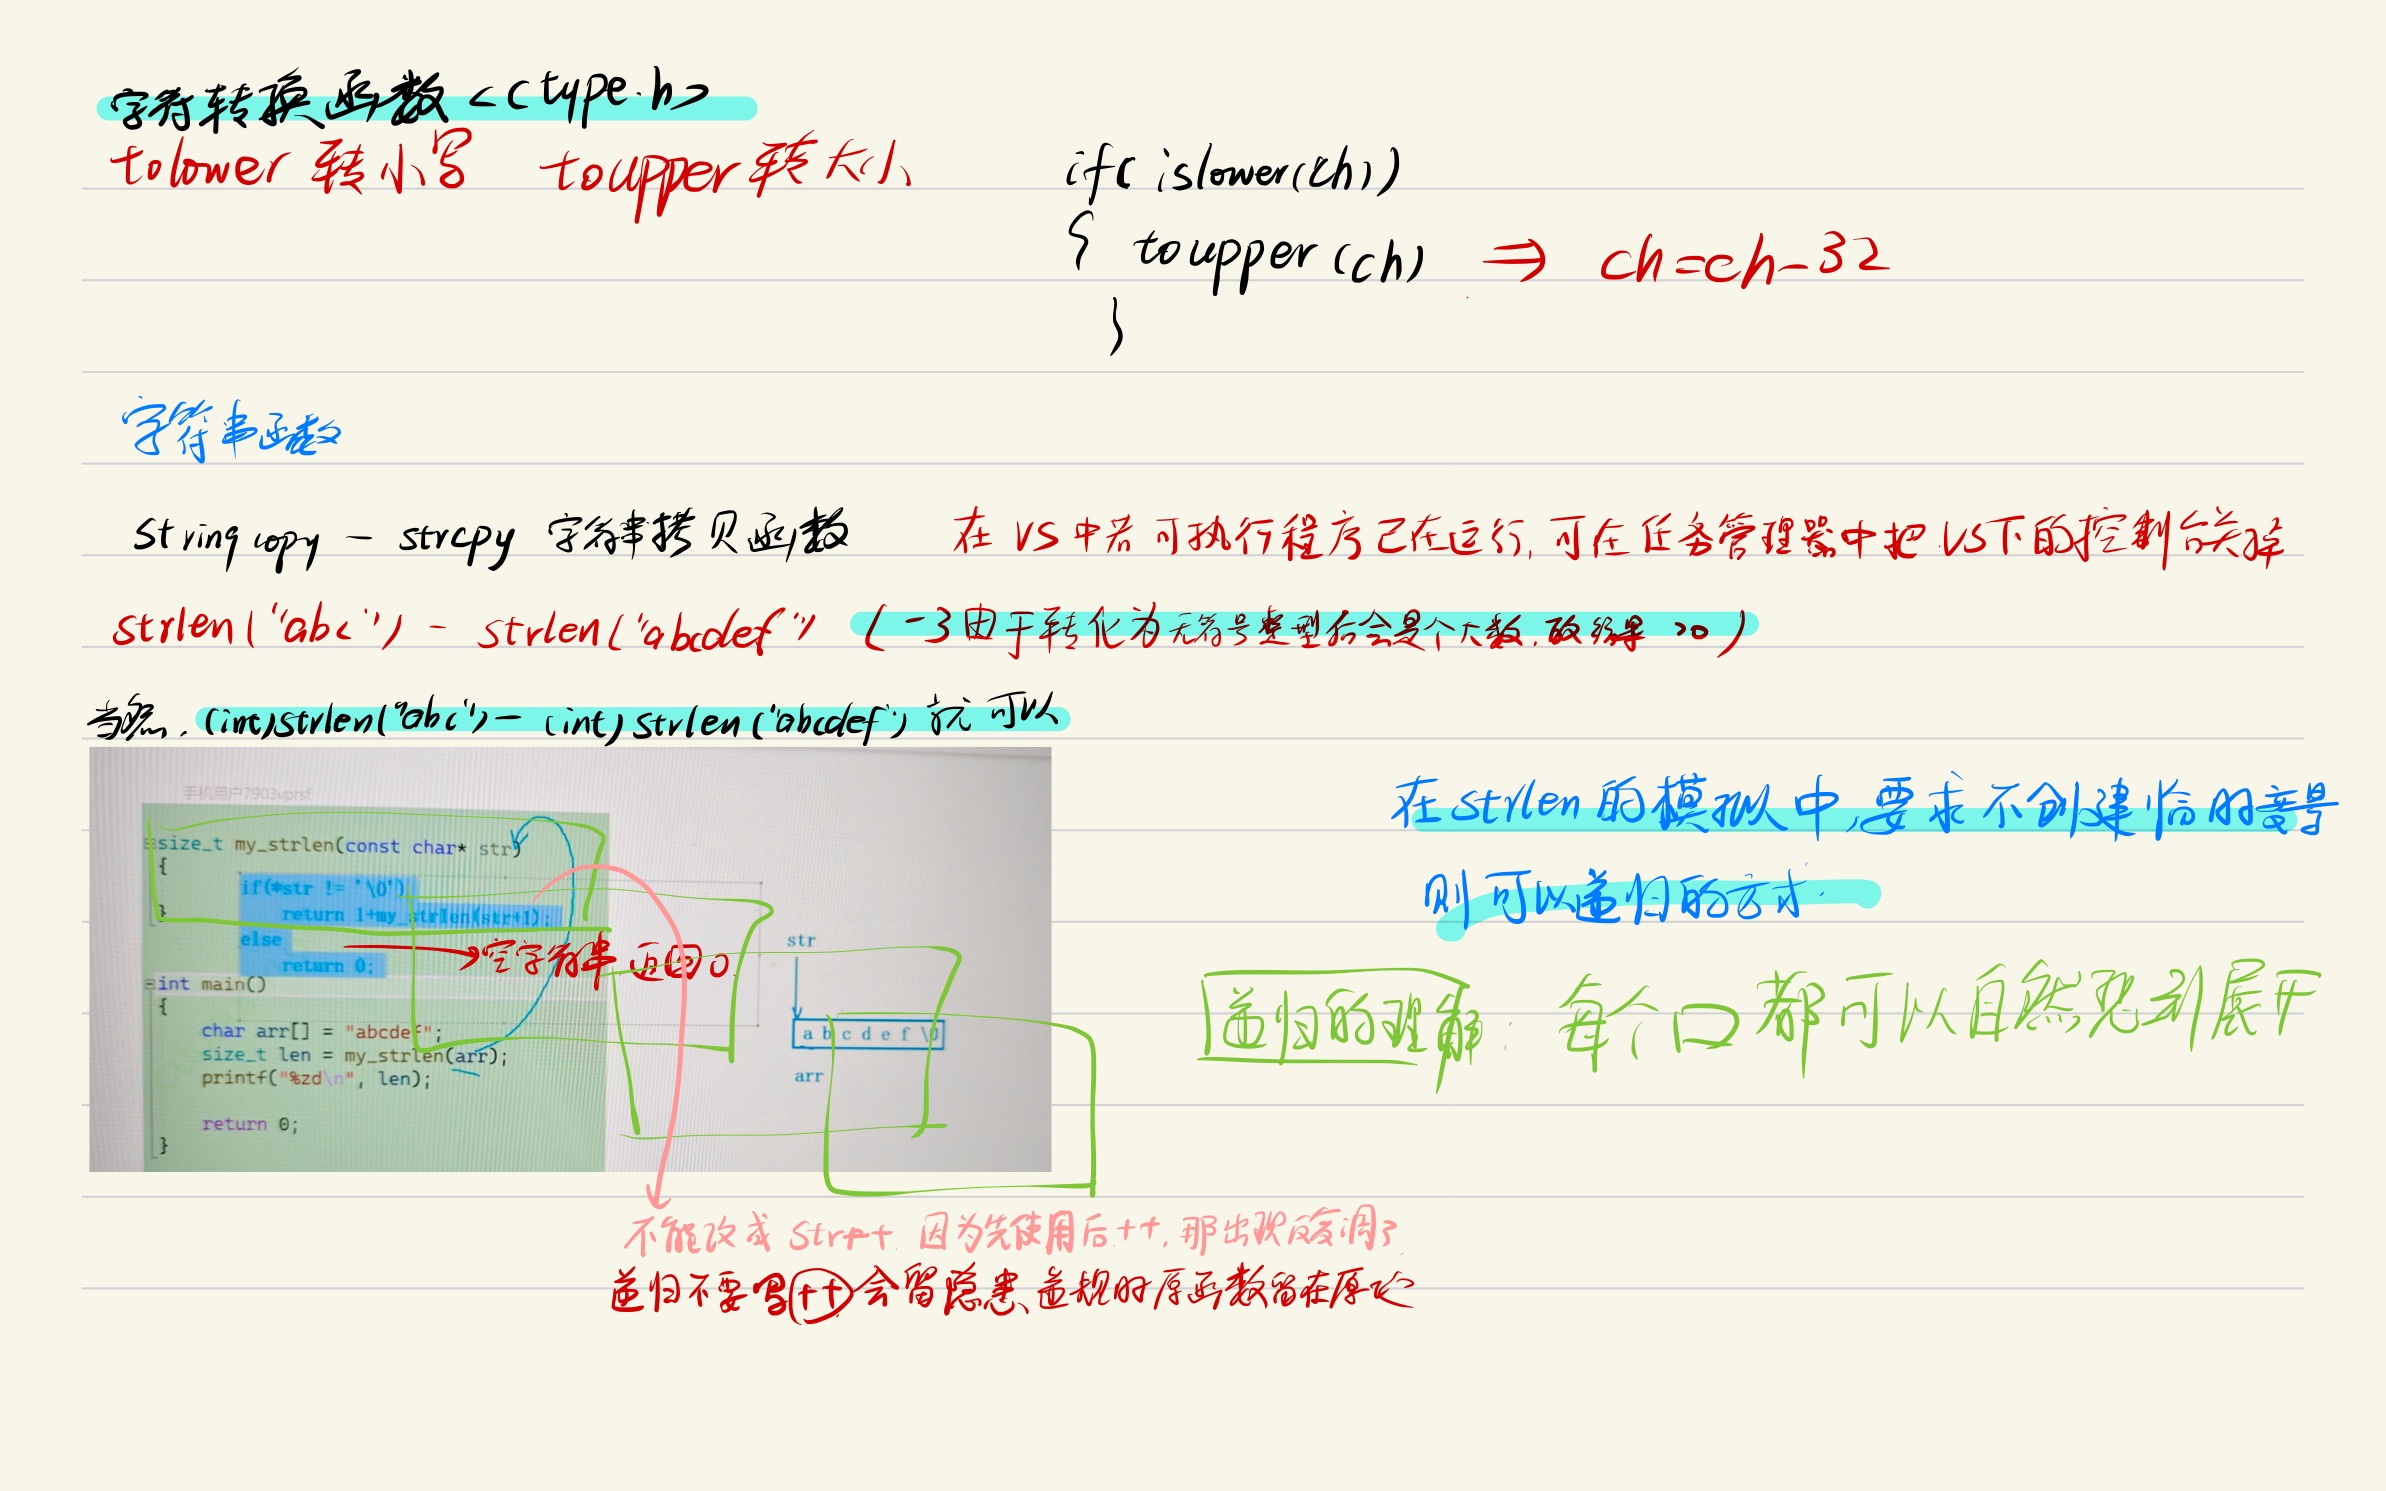 字符转换函数 <ctype.h>
tolower 转小写 toupper 转大小
if( islower(ch))
{ toupper (ch) ⇒ ch=ch-32
}
字符串函数
String copy - strcpy 字符串拷贝函数
在 VS 中若可执行程序已在运行, 可在任务管理器中把 VS下的控制台关掉
strlen("abc") - strlen("abcdef") (-3由于转化为无符号整型后会是个大数, 故结果 >0)
当然, (int)strlen("abc") - (int) strlen("abcdef") 就可以
手机用户7903vprsf
size_t my_strlen(const char* str)
{
if(*str != '\0')
return 1+my_strlen(str+1);
}
else
return 0;
→空字符串 返回0.
int main()
{
char arr[] = "abcdef";
size_t len = my_strlen(arr);
printf("%zd\n", len);
return 0;
}
str
a b c d e f \0
arr
在strlen的模拟中,要求不创建临时变量
则可以递归的方式.
递归的理解: 每个口都可以自然想到展开
不能改成 str++ 因为先使用后++, 那出现反复调了
递归不要写++会留隐患、递规时原函数留在原